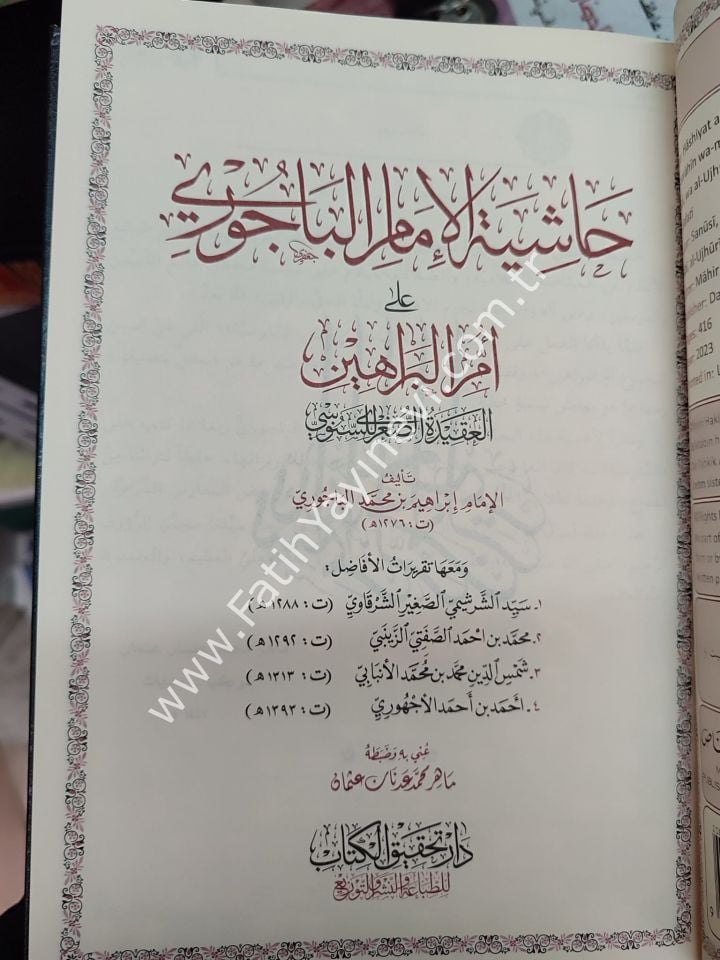 حاشية الإمام الباجوري
على
أم البراهين
العقيدة الصغرى للسنوسي
تأليف
الإمام إبراهيم بن محمد الباجوري
(ت: ١٢٧٦هـ)
ومعها تقريرات الأفاضل:
١ـ سيد الشرشيمي الصغير الشرقاوي (ت: ١٢٨٨هـ)
٢ـ محمد بن احمد الصفتي الزينبي (ت: ١٢٩٢هـ)
٣ـ شمس الدين محمد بن محمد الأنبابي (ت: ١٣١٣هـ)
٤ـ احمد بن أحمد الأجهوري (ت: ١٢٩٣هـ)
عني به وضبطه
ماهر محمد عدنان عثمان
دار تحقيق الكتاب
للطباعة والنشر والتوزيع
www.FatihYayinevi.com.tr
Hāshiyat a
wa al-Ujh
Sanūsī,
al-Ujhūrī
Māhir
416
2023